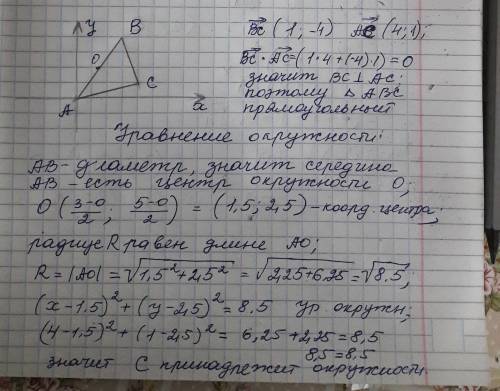 y B
O
C
A
a
BC (1; -4) AC (4; 1);
BC · AC = (1·4+(-4)·1) = 0
значит BC ⊥ AC;
поэтому △ ABC
прямоугольный
Уравнение окружности:
AB - диаметр, значит середина
AB - есть центр окружности O;
O ( (3-0)/2 ; (5-0)/2 ) = (1,5; 2,5) - коорд. центра;
радиус R равен длине AO;
R = |AO| = √(1,5² + 2,5²) = √(2,25+6,25) = √8.5;
(x - 1.5)² + (y - 2,5)² = 8,5 ур. окружн;
(4 - 1,5)² + (1 - 2,5)² = 6,25 + 2,25 = 8,5
8,5 = 8,5
значит C принадлежит окружности.